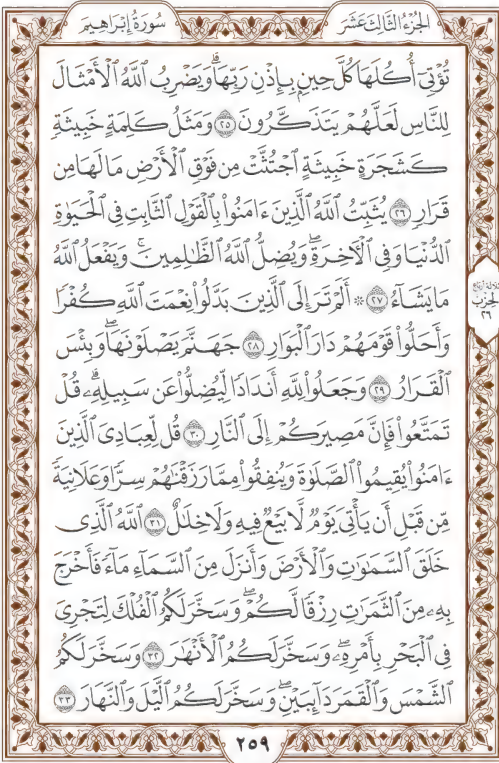 الجزء الثالث عشر
سورة إبراهيم
تُؤْتِىٓ أُكُلَهَا كُلَّ حِينٍۭ بِإِذْنِ رَبِّهَاۗ وَيَضْرِبُ ٱللَّهُ ٱلْأَمْثَالَ
لِلنَّاسِ لَعَلَّهُمْ يَتَذَكَّرُونَ ٢٥ وَمَثَلُ كَلِمَةٍ خَبِيثَةٍ
كَشَجَرَةٍ خَبِيثَةٍ ٱجْتُثَّتْ مِن فَوْقِ ٱلْأَرْضِ مَا لَهَا مِن
قَرَارٍ ٢٦ يُثَبِّتُ ٱللَّهُ ٱلَّذِينَ ءَامَنُوا۟ بِٱلْقَوْلِ ٱلثَّابِتِ فِى ٱلْحَيَوٰةِ
ٱلدُّنْيَا وَفِى ٱلْءَاخِرَةِۖ وَيُضِلُّ ٱللَّهُ ٱلظَّٰلِمِينَۚ وَيَفْعَلُ ٱللَّهُ
مَا يَشَآءُ ٢٧ ۞ أَلَمْ تَرَ إِلَى ٱلَّذِينَ بَدَّلُوا۟ نِعْمَتَ ٱللَّهِ كُفْرًا
وَأَحَلُّوا۟ قَوْمَهُمْ دَارَ ٱلْبَوَارِ ٢٨ جَهَنَّمَ يَصْلَوْنَهَاۖ وَبِئْسَ
ٱلْقَرَارُ ٢٩ وَجَعَلُوا۟ لِلَّهِ أَندَادًا لِّيُضِلُّوا۟ عَن سَبِيلِهِۦۗ قُلْ
تَمَتَّعُوا۟ فَإِنَّ مَصِيرَكُمْ إِلَى ٱلنَّارِ ٣٠ قُل لِّعِبَادِىَ ٱلَّذِينَ
ءَامَنُوا۟ يُقِيمُوا۟ ٱلصَّلَوٰةَ وَيُنفِقُوا۟ مِمَّا رَزَقْنَٰهُمْ سِرًّا وَعَلَانِيَةً
مِّن قَبْلِ أَن يَأْتِىَ يَوْمٌ لَّا بَيْعٌ فِيهِ وَلَا خِلَٰلٌ ٣١ ٱللَّهُ ٱلَّذِى
خَلَقَ ٱلسَّمَٰوَٰتِ وَٱلْأَرْضَ وَأَنزَلَ مِنَ ٱلسَّمَآءِ مَآءً فَأَخْرَجَ
بِهِۦ مِنَ ٱلثَّمَرَٰتِ رِزْقًا لَّكُمْۖ وَسَخَّرَ لَكُمُ ٱلْفُلْكَ لِتَجْرِىَ
فِى ٱلْبَحْرِ بِأَمْرِهِۦۖ وَسَخَّرَ لَكُمُ ٱلْأَنْهَٰرَ ٣٢ وَسَخَّرَ لَكُمُ
ٱلشَّمْسَ وَٱلْقَمَرَ دَآئِبَيْنِۖ وَسَخَّرَ لَكُمُ ٱلَّيْلَ وَٱلنَّهَارَ ٣٣
ثلاثة أرباع
الحزب
٢٦
٢٥٩